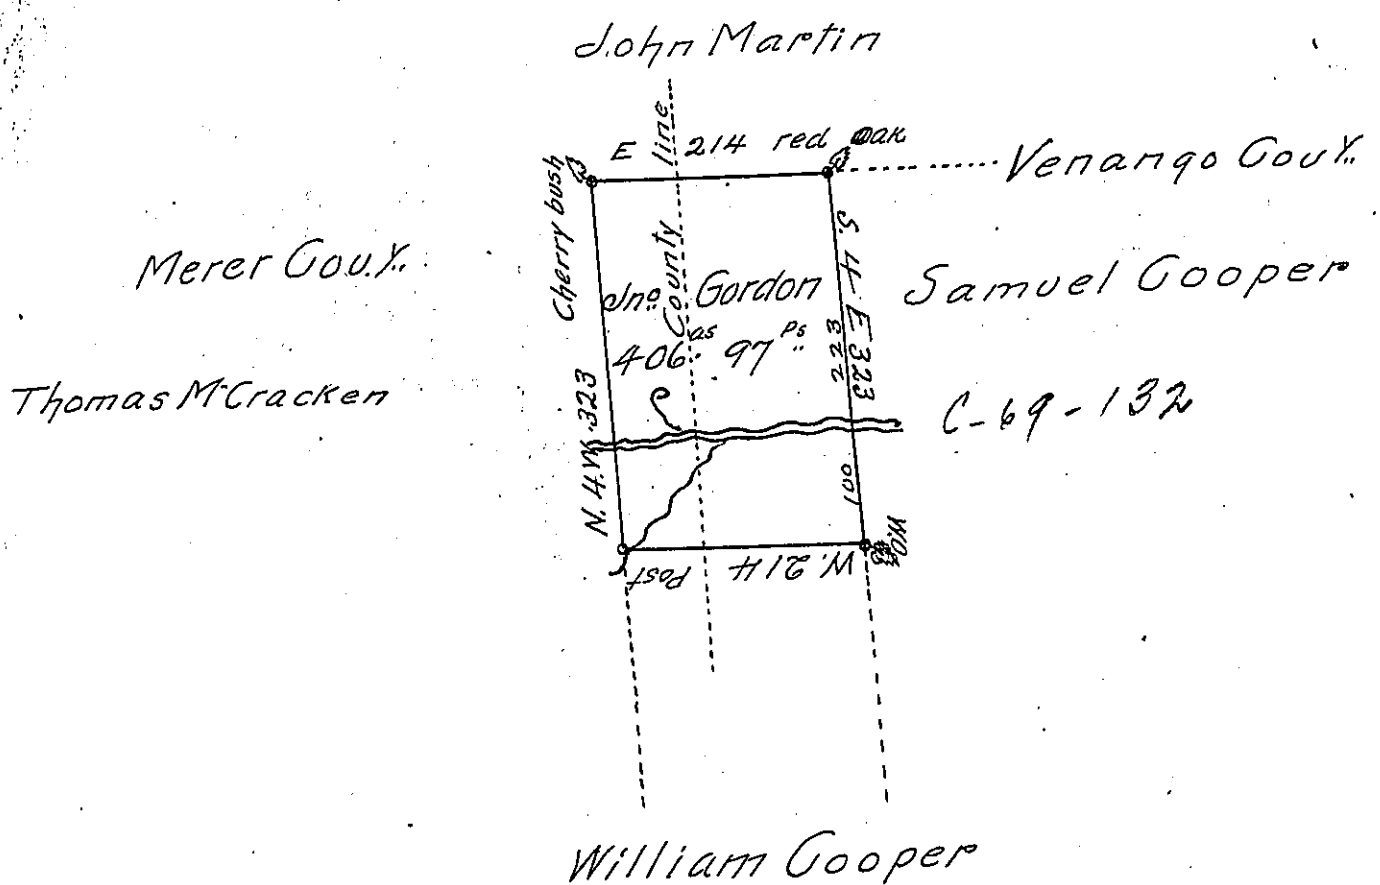 John Martin
E 214 red oak
County line
Venango Couy.
Cherry bush
Merer Cou.y.
Jno. Gordon
406 as 97 ps
S. 4 E 323
223
Samuel Cooper
Thomas McCracken
N. 4.W. 323
C-69-132
100
W.O.
W. 214
Post
William Cooper